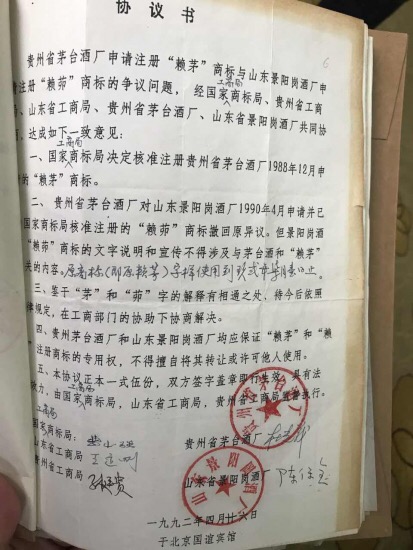 协议书
6
贵州省茅台酒厂申请注册“赖茅”商标与山东景阳岗酒厂申
请注册“赖茆”商标的争议问题，经国家工商局商标局、贵州省工商
局、山东省工商局、贵州省茅台酒厂、山东省景阳岗酒厂共同协
商，达成如下一致意见：
一、国家工商局商标局决定核准注册贵州省茅台酒厂1988年12月申
请的“赖茅”商标。
二、贵州省茅台酒厂对山东景阳岗酒厂1990年4月申请并已
国家商标局核准注册的“赖茆”商标撤回原异议。但景阳岗酒
“赖茆”商标的文字说明和宣传不得涉及与茅台酒和“赖茅”
关的内容。原商标（即原赖茅）字样使用到
三、鉴于“茅”和“茆”字的解释有相通之处，待今后依照
律规定，在工商部门的协助下协商解决。
四、贵州茅台酒厂和山东景阳岗酒厂均应保证“赖茅”和“赖
”注册商标的专用权，不得擅自将其转让或许可他人使用。
五、本协议正本一式伍份，双方签字盖章即行生效，具有法
效力，由国家工商局商标局，山东省工商局，贵州省工商局监督执行。
国家工商局商标局：
山东省工商局
贵州省工商局
贵州省茅台酒厂
山东省景阳岗酒厂
一九九二年四月十六日
于北京国谊宾馆